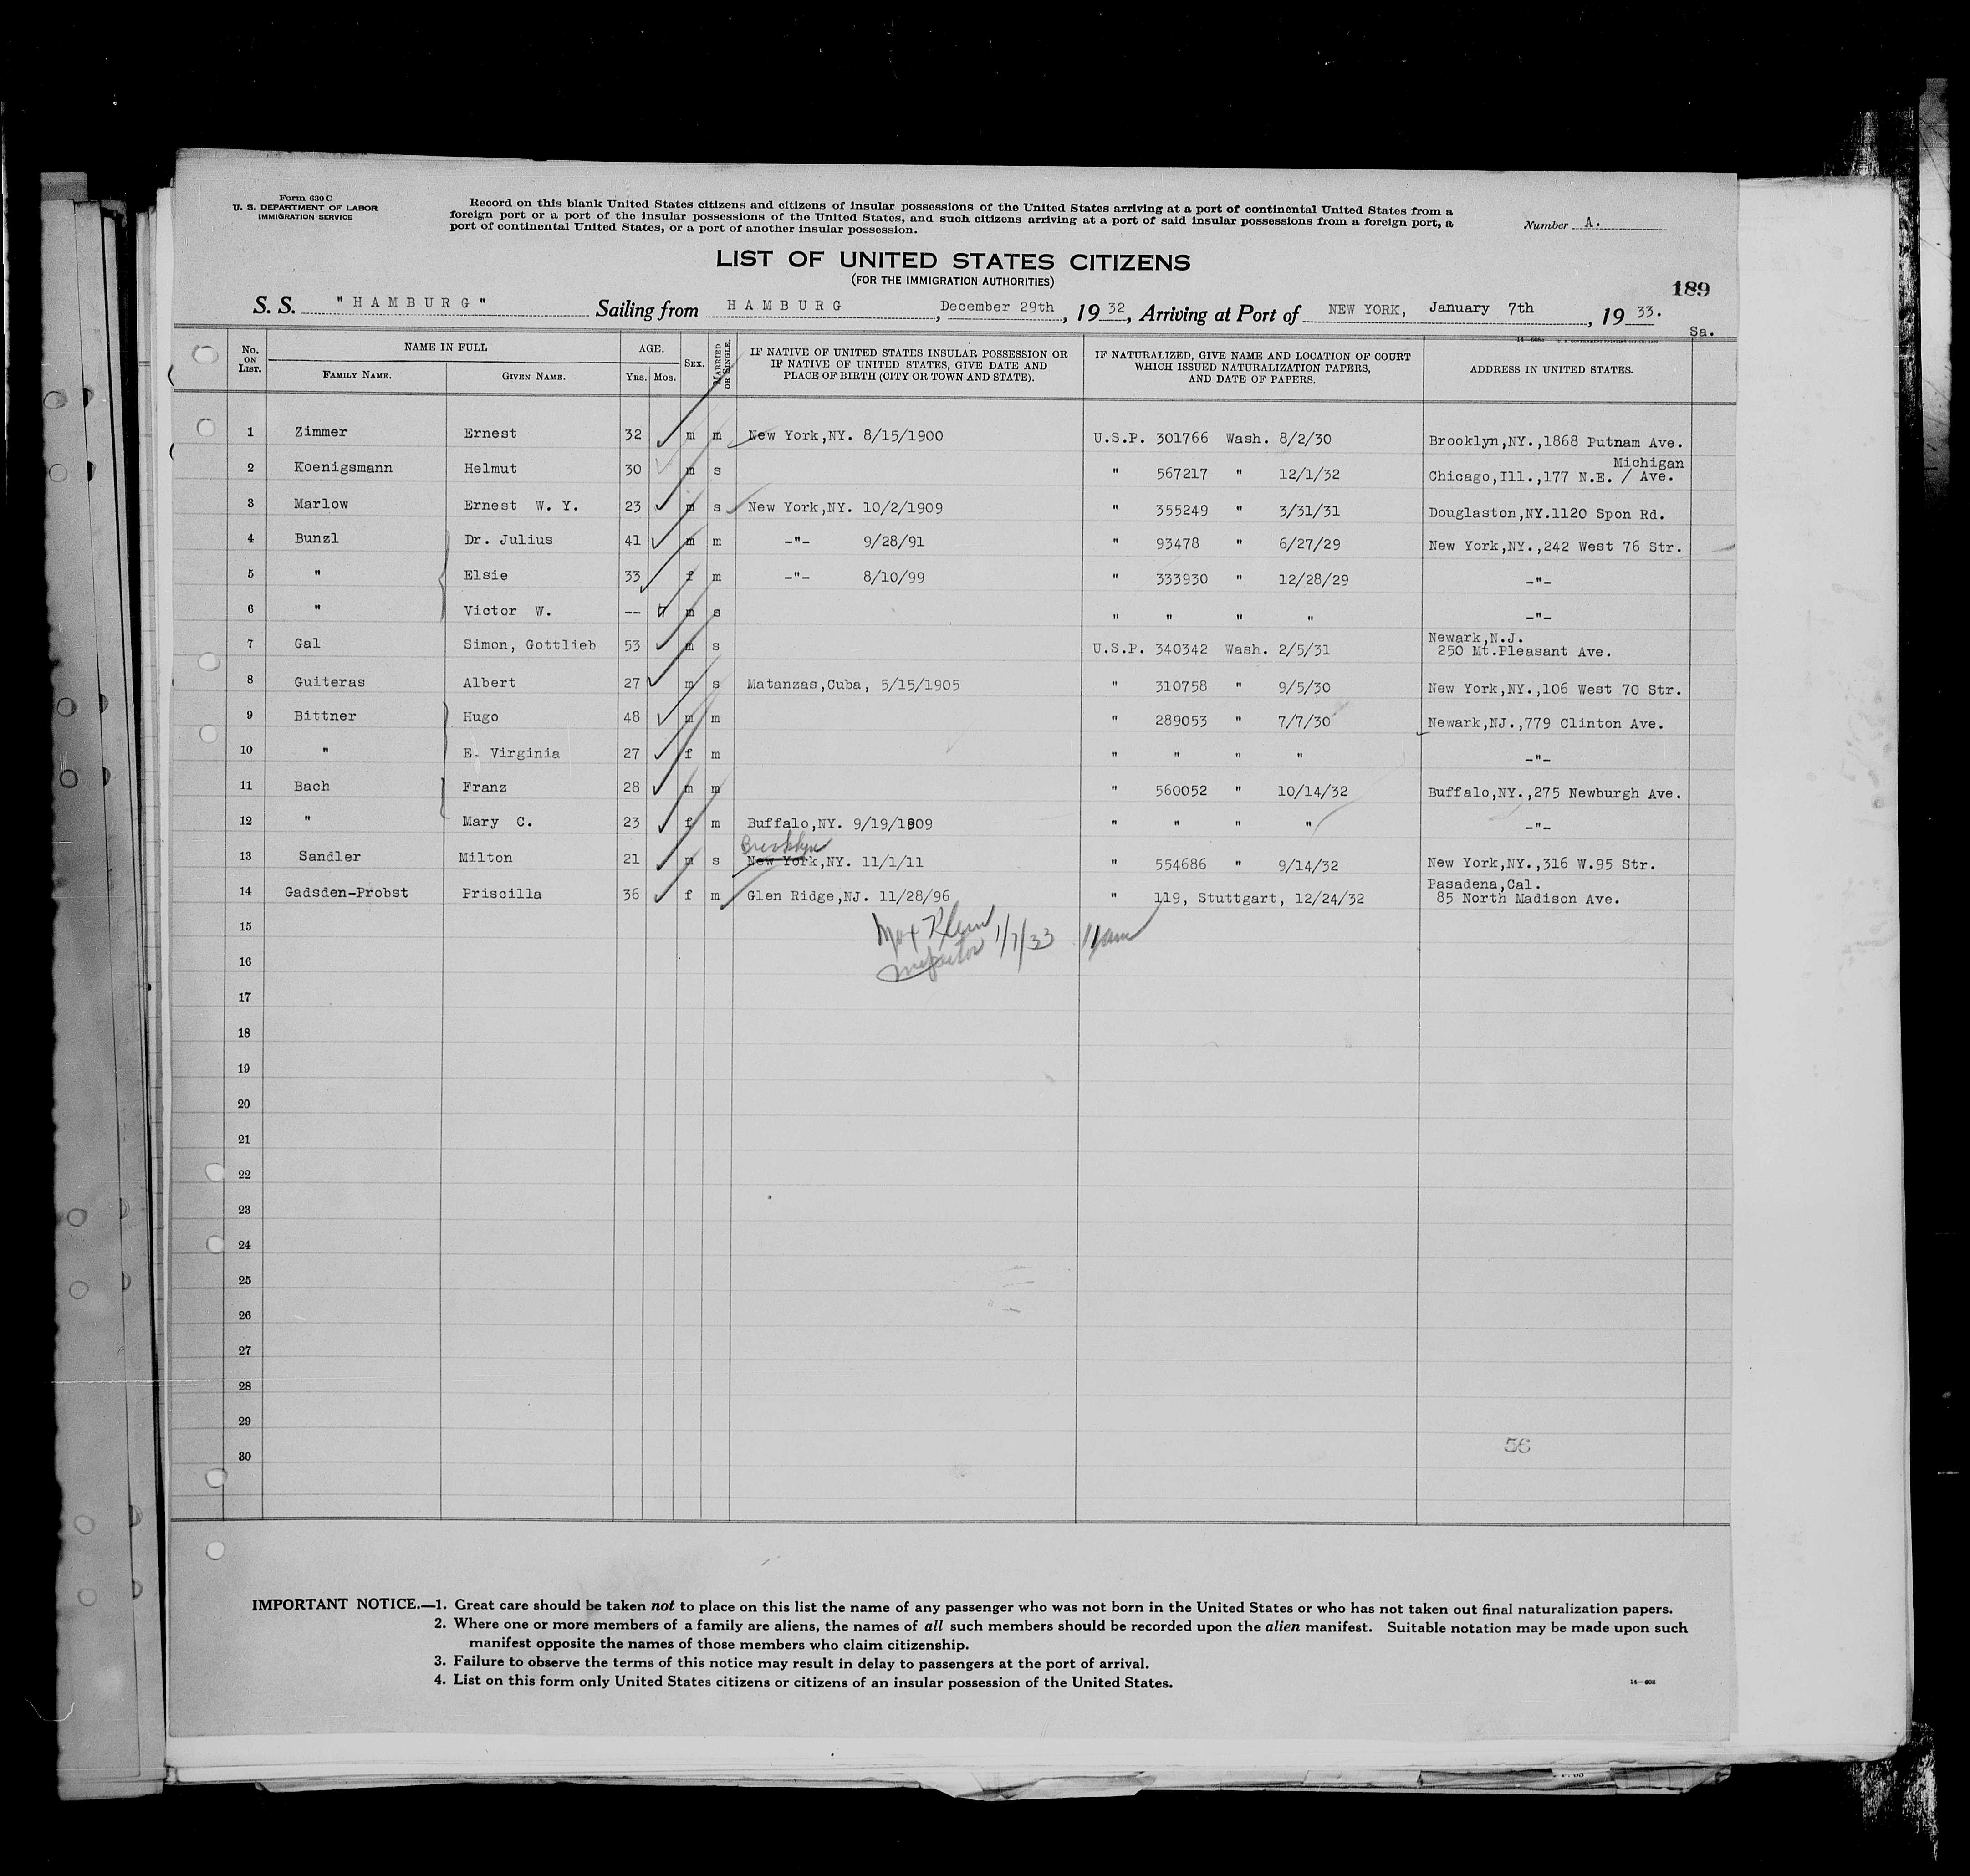 Form 630 C
U. S. DEPARTMENT OF LABOR
IMMIGRATION SERVICE
Record on this blank United States citizens and citizens of insular possessions of the United States arriving at a port of continental United States from a
foreign port or a port of the insular possessions of the United States, and such citizens arriving at a port of said insular possessions from a foreign port, a
port of continental United States, or a port of another insular possession.
Number A.
LIST OF UNITED STATES CITIZENS
(FOR THE IMMIGRATION AUTHORITIES)
189
S. S. "HAMBURG" Sailing from HAMBURG, December 29th, 1932, Arriving at Port of NEW YORK, January 7th, 1933.
Sa.
No. ON LIST. NAME IN FULL FAMILY NAME. GIVEN NAME. AGE. YRS. MOS. SEX. MARRIED OR SINGLE. IF NATIVE OF UNITED STATES INSULAR POSSESSION OR IF NATIVE OF UNITED STATES, GIVE DATE AND PLACE OF BIRTH (CITY OR TOWN AND STATE). IF NATURALIZED, GIVE NAME AND LOCATION OF COURT WHICH ISSUED NATURALIZATION PAPERS, AND DATE OF PAPERS. ADDRESS IN UNITED STATES.
1 Zimmer Ernest 32 m m New York,NY. 8/15/1900 U.S.P. 301766 Wash. 8/2/30 Brooklyn,NY.,1868 Putnam Ave.
Michigan
2 Koenigsmann Helmut 30 m s " 567217 " 12/1/32 Chicago,Ill.,177 N.E. / Ave.
3 Marlow Ernest W. Y. 23 m s New York,NY. 10/2/1909 " 355249 " 3/31/31 Douglaston,NY.1120 Spon Rd.
4 Bunzl Dr. Julius 41 m m -"- 9/28/91 " 93478 " 6/27/29 New York,NY.,242 West 76 Str.
5 " Elsie 33 f m -"- 8/10/99 " 333930 " 12/28/29 -"-
6 " Victor W. -- m s " " " " -"-
7 Gal Simon, Gottlieb 53 m s U.S.P. 340342 Wash. 2/5/31 Newark,N.J.
250 Mt.Pleasant Ave.
8 Guiteras Albert 27 m s Matanzas,Cuba, 5/15/1905 " 310758 " 9/5/30 New York,NY.,106 West 70 Str.
9 Bittner Hugo 48 m m " 289053 " 7/7/30 Newark,NJ.,779 Clinton Ave.
10 " E. Virginia 27 f m " " " " -"-
11 Bach Franz 28 m m " 560052 " 10/14/32 Buffalo,NY.,275 Newburgh Ave.
12 " Mary C. 23 f m Buffalo,NY. 9/19/1909 " " " " -"-
Brooklyn
13 Sandler Milton 21 m s New York,NY. 11/1/11 " 554686 " 9/14/32 New York,NY.,316 W.95 Str.
14 Gadsden-Probst Priscilla 36 f m Glen Ridge,NJ. 11/28/96 " 119, Stuttgart, 12/24/32 Pasadena,Cal.
85 North Madison Ave.
15 Max Klein 1/7/33 11am
16 Inspector
17
18
19
20
21
22
23
24
25
26
27
28
29
56
30
IMPORTANT NOTICE.—1. Great care should be taken not to place on this list the name of any passenger who was not born in the United States or who has not taken out final naturalization papers.
2. Where one or more members of a family are aliens, the names of all such members should be recorded upon the alien manifest. Suitable notation may be made upon such
manifest opposite the names of those members who claim citizenship.
3. Failure to observe the terms of this notice may result in delay to passengers at the port of arrival.
4. List on this form only United States citizens or citizens of an insular possession of the United States.